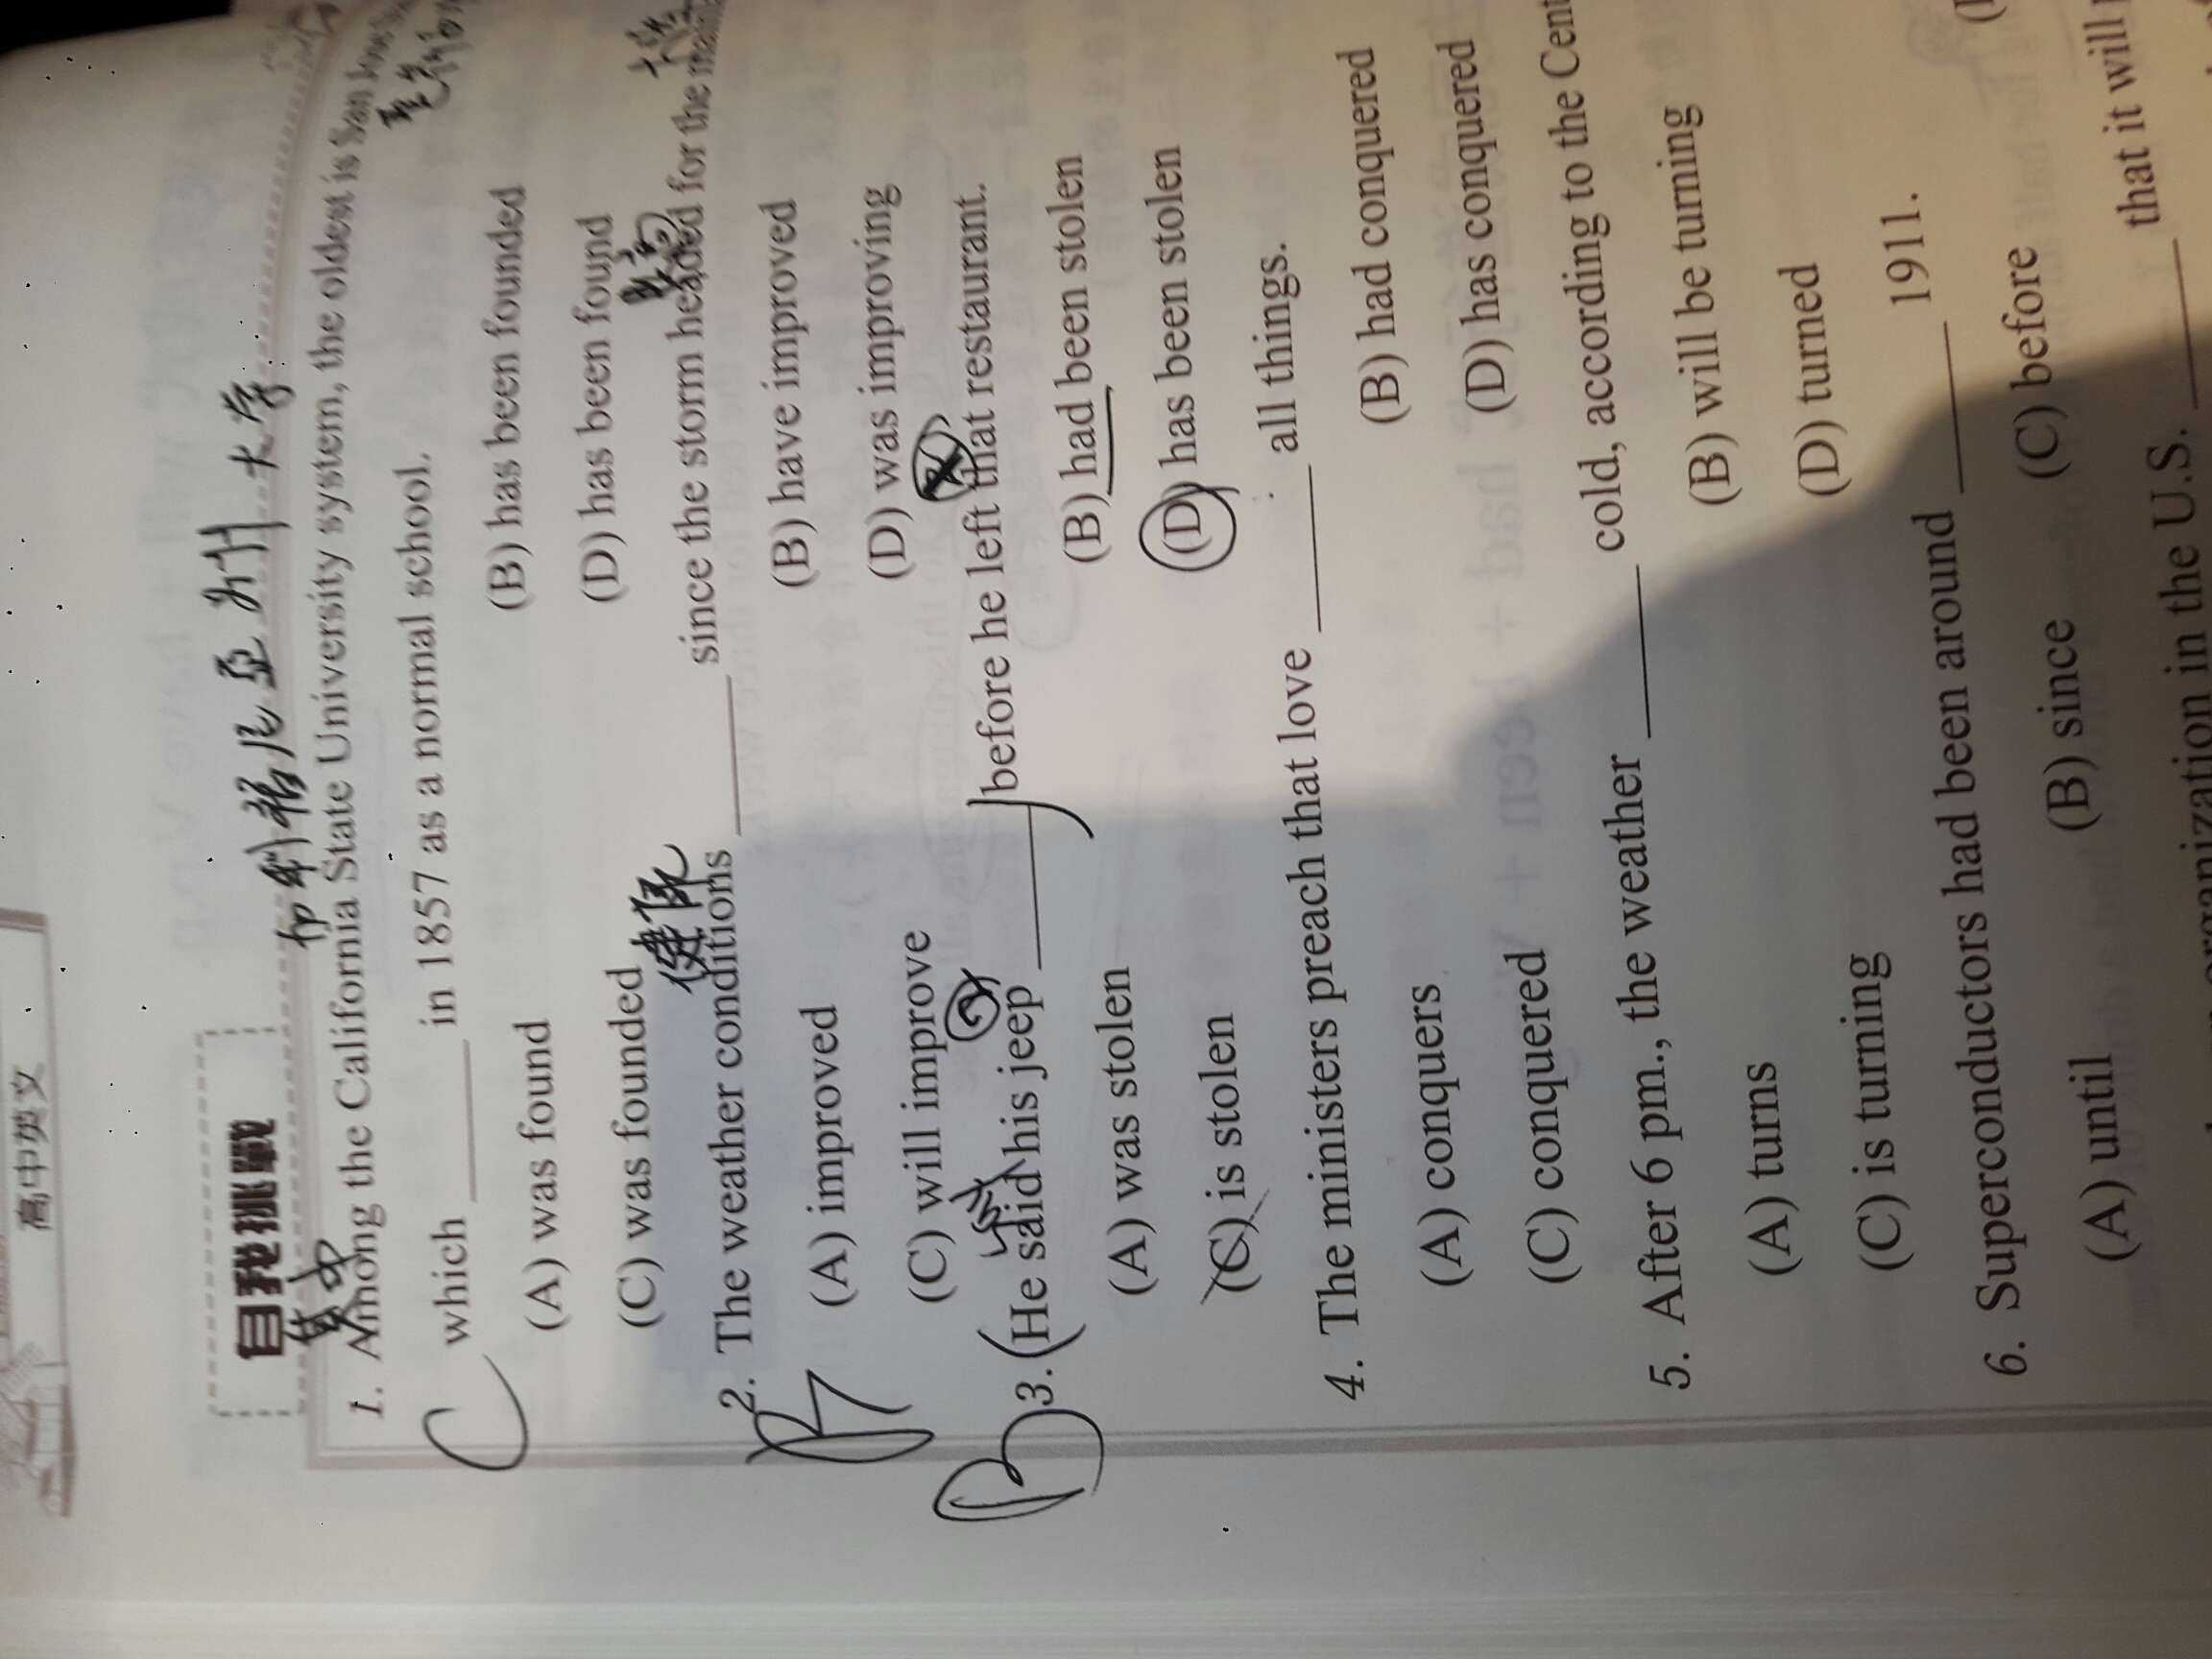 高中英文
自我挑戰
加利福尼亞州大学
其中
1. Among the California State University system, the oldest is San Jose
which ______ in 1857 as a normal school.
(A) was found (B) has been founded
(C) was founded (D) has been found
2. The weather conditions ______ since the storm headed for the
(A) improved (B) have improved
(C) will improve (D) was improving
3. (He said his jeep ______ before he left that restaurant.
(A) was stolen (B) had been stolen
(C) is stolen (D) has been stolen
4. The ministers preach that love ______ all things.
(A) conquers (B) had conquered
(C) conquered (D) has conquered
5. After 6 pm., the weather ______ cold, according to the
(A) turns (B) will be turning
(C) is turning (D) turned
6. Superconductors had been around ______ 1911.
(A) until (B) since (C) before
organization in the U.S. ______ that it will